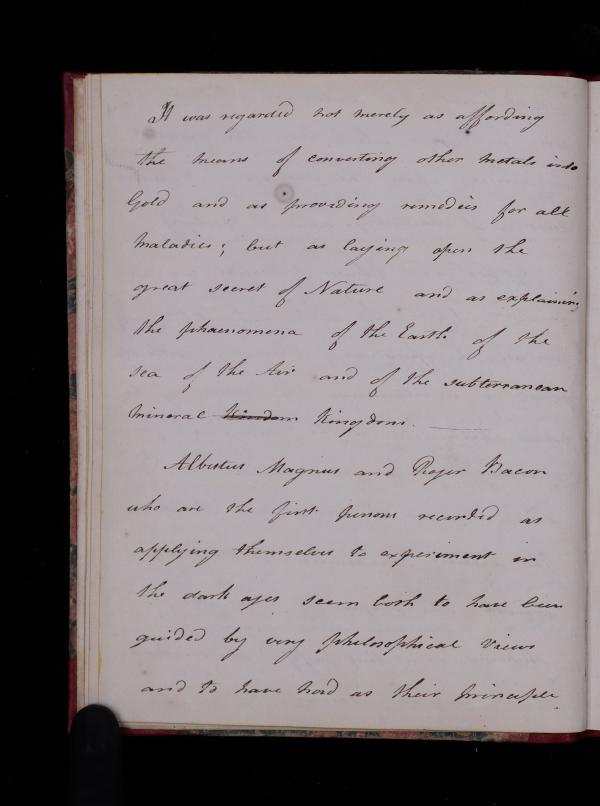 It was regarded not merely as affording
the means of converting other metals into
Gold and as providing remedies for all
maladies; but as laying open the
great secret of Nature and as explaining
the phaenomena of the Earth of the
sea of the Air and of the subterranean
mineral Kindom Kingdom.
Albertus Magnus and Roger Bacon
who are the first persons recorded as
applying themselves to experiment in
the dark ages seem both to have been
guided by very philosophical views
and to have had as their principle